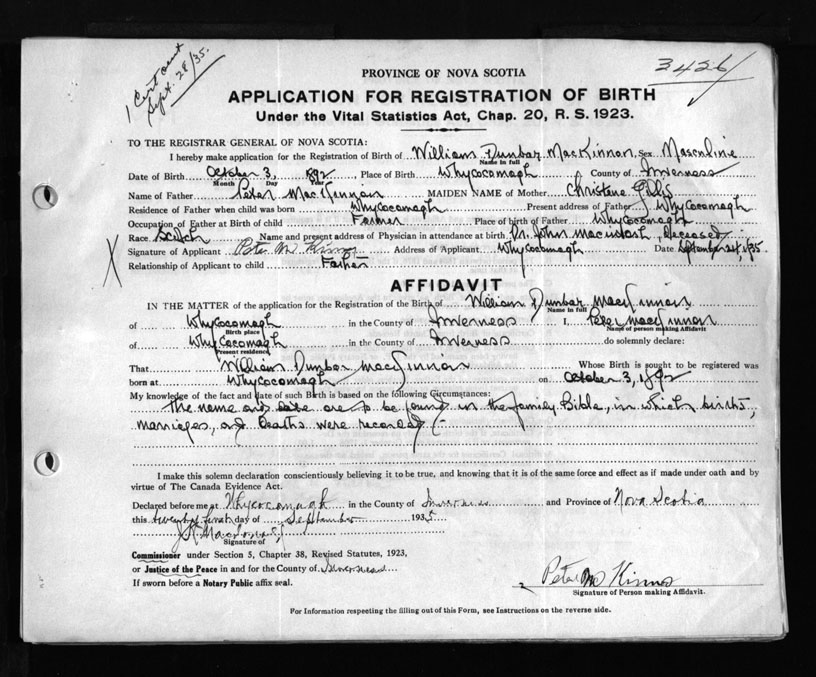 1 Cert out
Sept. 28/35.
3426
PROVINCE OF NOVA SCOTIA
APPLICATION FOR REGISTRATION OF BIRTH
Under the Vital Statistics Act, Chap. 20, R. S. 1923.
TO THE REGISTRAR GENERAL OF NOVA SCOTIA:
I hereby make application for the Registration of Birth of William Dunbar MacKinnon Sex Masculine
Name in full
Date of Birth October 3, 1892 Place of Birth Whycocomagh County of Inverness
Month Day Year
Name of Father Peter MacKinnon MAIDEN NAME of Mother Christene Gillis
Residence of Father when child was born Whycocomagh Present address of Father Whycocomagh
Occupation of Father at Birth of child Farmer Place of birth of Father Whycocomagh
Race Scotch Name and present address of Physician in attendance at birth Dr. John MacIntosh, deceased
Signature of Applicant Peter Mc Kinnon Address of Applicant Whycocomagh Date September 21, 1935
Relationship of Applicant to child Father
X
AFFIDAVIT
IN THE MATTER of the application for the Registration of the Birth of William Dunbar MacKinnon
Name in full
of Whycocomagh in the County of Inverness I, Peter MacKinnon
Birth place Name of person making Affidavit
of Whycocomagh in the County of Inverness do solemnly declare:
Present residence
That William Dunbar MacKinnon Whose Birth is sought to be registered was
born at Whycocomagh on October 3, 1892
My knowledge of the fact and date of such Birth is based on the following Circumstances:
The name and date are to be found in the family Bible, in which births,
marriages, and deaths were recorded.-
I make this solemn declaration conscientiously believing it to be true, and knowing that it is of the same force and effect as if made under oath and by
virtue of The Canada Evidence Act.
Declared before me at Whycocomagh in the County of Inverness and Province of Nova Scotia
this twenty first day of September 1935
Signature of
Commissioner under Section 5, Chapter 38, Revised Statutes, 1923,
or Justice of the Peace in and for the County of Inverness
If sworn before a Notary Public affix seal.
Peter Mc Kinnon
Signature of Person making Affidavit.
For Information respecting the filling out of this Form, see Instructions on the reverse side.